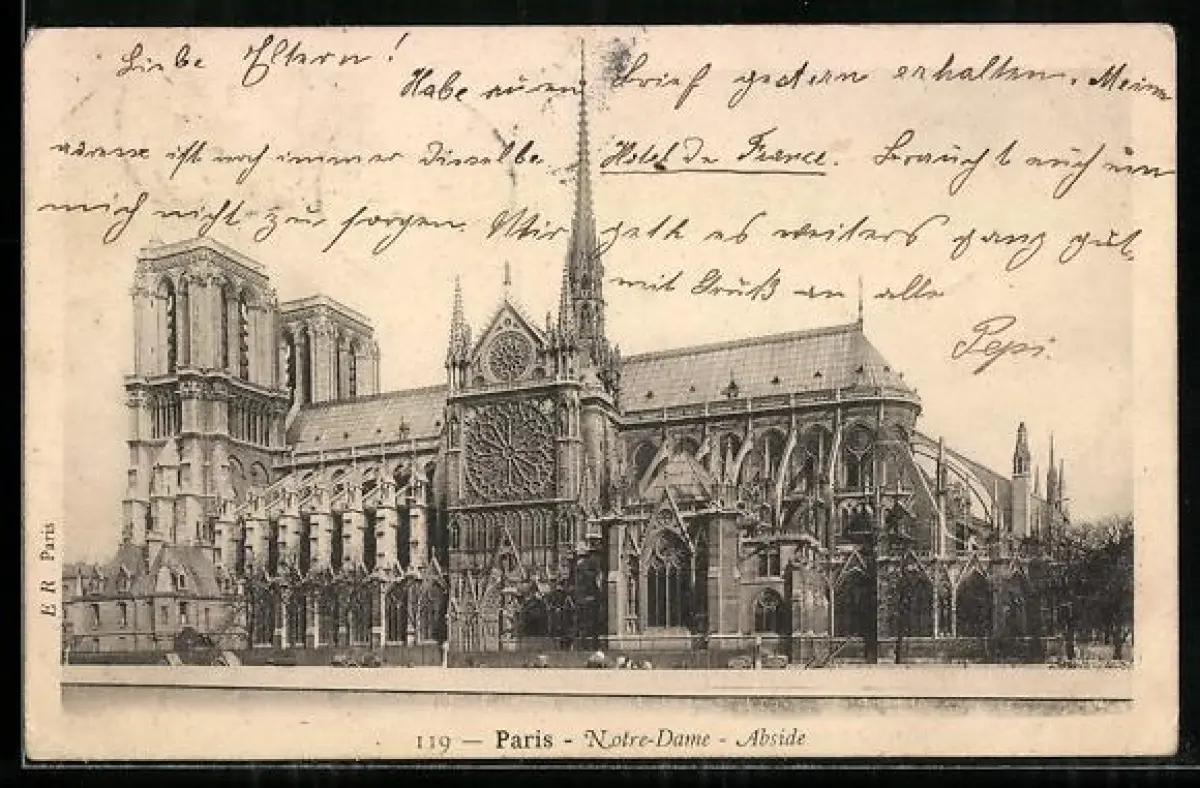 Liebe Eltern!
Habe euren Brief gestern erhalten. Meine
Adresse ist noch immer dieselbe. Hotel de France. Braucht euch um
mich nicht zu sorgen. Mir geht es weiters ganz gut.
mit Gruß an alle
Pepi.
E R Paris
119 — Paris - Notre-Dame - Abside